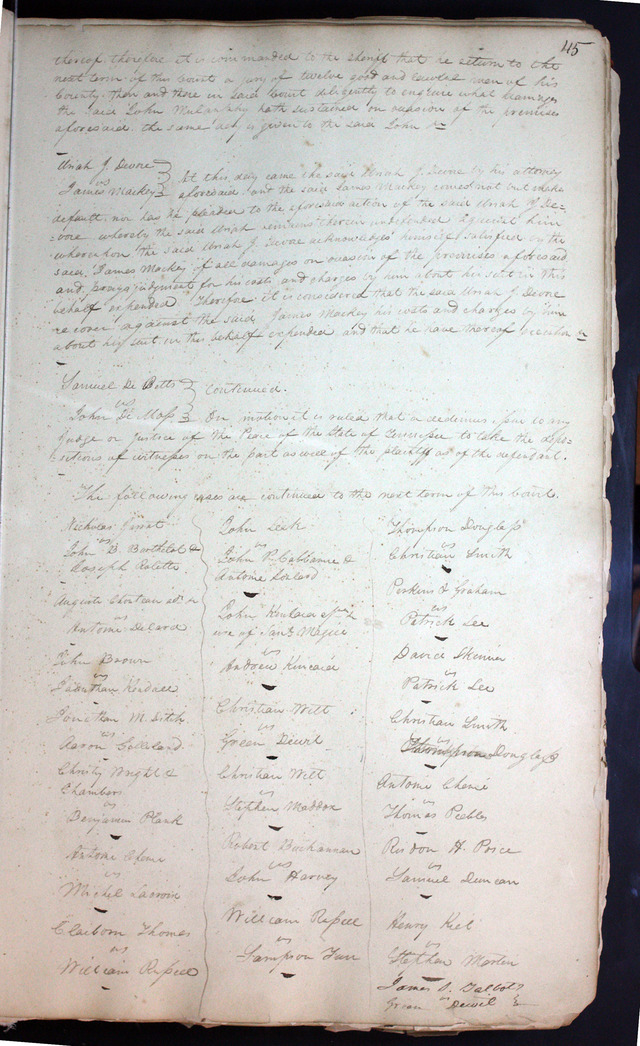 45
thereof therefore it is commanded to the sheriff that he return to the
next term of this court a jury of twelve good and lawful men of his
County then and there in said Court diligently to enquire what damages
the said John Mulanphy hath sustained on occasion of the premises
aforesaid the same day is given to the said John &c
Uriah J. Devore
vs
James Mackey } At this day came the said Uriah J. Devore by his attorney
aforesaid and the said James Mackey comes not but makes
default nor has he pleaded to the aforesaid action of the said Uriah J. De=
=vore whereby the said Uriah remains therein undefended against him
whereupon the said Uriah J. Devore acknowledges himself satisfied by the
said James Mackey of all damages on occasion of the premises aforesaid
and prays judgment for his costs and charges by him about his suit in this
behalf expended Therefore it is considered that the said Uriah J. Devore
recover against the said James Mackey his costs and charges by him
about his suit in this behalf expended and that he have thereof execution &c
Samuel De Betts } continued.
vs
John De Moss } On motion it is ruled that a dedimus issue to any
Judge or Justice of the Peace of the State of Tennessee to take the depo=
=sitions of witnesses on the part as well of the plaintiff as of the defendant.
The following cases are continued to the next term of this Court.
Nicholas Jarrot
vs
John B. Barthelot &
Joseph Rolette
Auguste Chouteau
vs
Antoine Delard
John Brown
vs
Jonathan Kendall
Jonathan M. Ditch
vs
Aaron Calleland
Christy Wright &
Chambers
vs
Benjamin Plank
Antoine
vs
Michel Lacroix
Claiborn Thomas
vs
William Russell
John Lesk
vs
John P. Cabbanne &
Antoine Soulard
John Kinkead
use of Saml Magill
vs
Andrew Kincaid
Christian Witt
vs
Green Dewit
Christian Witt
vs
Stephen Maddon
Robert Buchannan
vs
John Harvey
William Russell
vs
Sampson
Thompson Douglass
vs
Christian Smith
Perkins & Graham
vs
Patrick Lee
David Skinner
vs
Patrick Lee
Christian Smith
vs
Thompson Douglass
Antoine Chenie
vs
Thomas Peebles
Risdon H. Price
vs
Samuel Duncan
Henry Kiel
vs
Stephen Morten
James D. Talbot
vs
Green Dewit